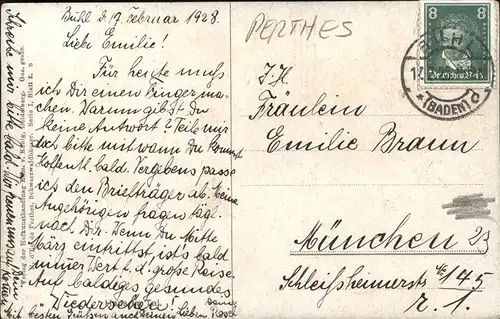 Bühl d. 17. Februar 1928.
Liebe Emilie!
Für heute muß
ich Dir einen Finger ma-
chen. Warum gibst Du
keine Antwort? Teile mir
doch bitte mit wann Du kommst
Hoffentl. bald. Vergebens passe
ich den Briefträger ab. Meine
Angehörigen fragen tägl.
nach Dir. Wenn Du Mitte
März eintriffst ist's bald
immer Wert d. große Reise.
Auf baldiges gesundes
Wiedersehen!
besten Grüßen auch Deinen Lieben
Schreibe mir bitte bald.
PERTHES
8 8
Deutsches Reich
(BADEN)
I. H.
Fräulein
Emilie Braun
München 23
Schleißheimerstr. 145
r. 1.